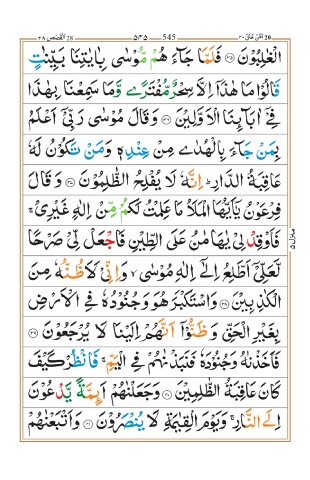 ٢٨ القصص ٢٨ ٥٤٥ 545 امن خلق ٢٠ 20
الْغٰلِبُوْنَ ۝٣٥ فَلَمَّا جَآءَ هُمْ مُّوْسٰى بِاٰيٰتِنَا بَيِّنٰتٍ
قَالُوْا مَا هٰذَاۤ اِلَّا سِحْرٌ مُّفْتَرًى وَّمَا سَمِعْنَا بِهٰذَا
فِيْۤ اٰبَآئِنَا الْاَوَّلِيْنَ ۝٣٦ وَقَالَ مُوْسٰى رَبِّيْۤ اَعْلَمُ
بِمَنْ جَآءَ بِالْهُدٰى مِنْ عِنْدِهٖ وَمَنْ تَكُوْنُ لَهٗ
عَاقِبَةُ الدَّارِ ؕ اِنَّهٗ لَا يُفْلِحُ الظّٰلِمُوْنَ ۝٣٧ وَقَالَ
فِرْعَوْنُ يٰۤاَيُّهَا الْمَلَاُ مَا عَلِمْتُ لَكُمْ مِّنْ اِلٰهٍ غَيْرِيْ ۚ
فَاَوْقِدْ لِيْ يٰهَامٰنُ عَلَى الطِّيْنِ فَاجْعَلْ لِّيْ صَرْحًا
لَّعَلِّيْۤ اَطَّلِعُ اِلٰۤى اِلٰهِ مُوْسٰى ۙ وَاِنِّيْ لَاَظُنُّهٗ مِنَ
الْكٰذِبِيْنَ ۝٣٨ وَاسْتَكْبَرَ هُوَ وَجُنُوْدُهٗ فِي الْاَرْضِ
بِغَيْرِ الْحَقِّ وَظَنُّوْۤا اَنَّهُمْ اِلَيْنَا لَا يُرْجَعُوْنَ ۝٣٩
فَاَخَذْنٰهُ وَجُنُوْدَهٗ فَنَبَذْنٰهُمْ فِي الْيَمِّ ۚ فَانْظُرْ كَيْفَ
كَانَ عَاقِبَةُ الظّٰلِمِيْنَ ۝٤٠ وَجَعَلْنٰهُمْ اَئِمَّةً يَّدْعُوْنَ
اِلَى النَّارِ ۚ وَيَوْمَ الْقِيٰمَةِ لَا يُنْصَرُوْنَ ۝٤١ وَاَتْبَعْنٰهُمْ